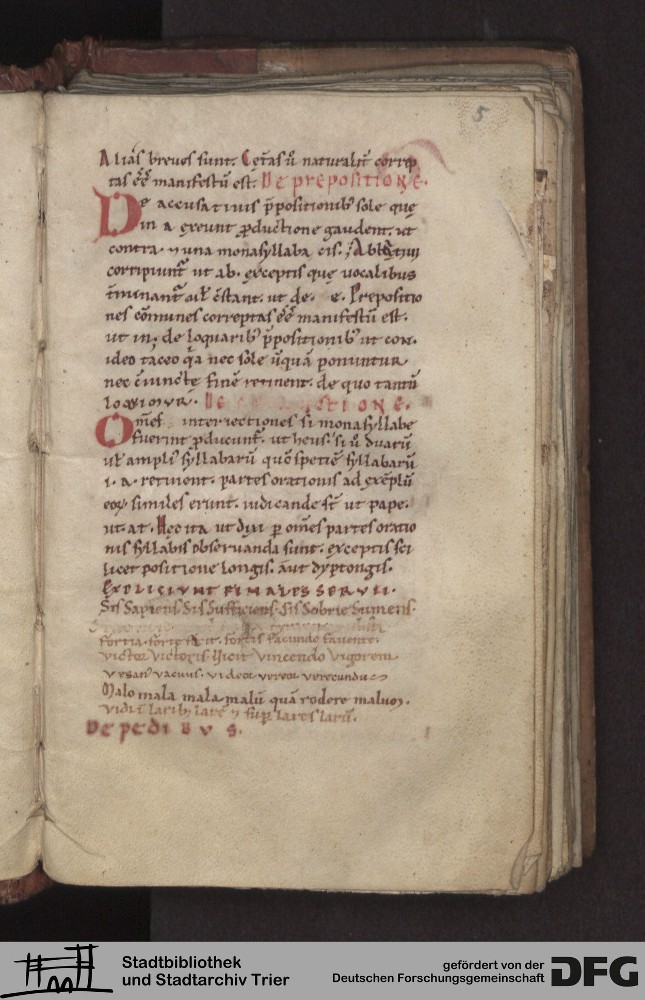 5
Alias breues sunt. Cet̄as ū naturalit̄ correp
tas ēē manifestū est. De prepositione.
De accusatiuis p̄positionib; sole que
in a exeunt ꝓductione gaudent. ut
contra. ⁊ una monasyllaba cis. Ablatiui
corripiunt̄ ut ab. exceptis quę uocalibus
t̄minant̄ aut c̄stant. ut de. e. Prepositio
nes cōmunes correptas ēē manifestū est.
ut in. de loquarib; p̄positionib; ut con.
ideo taceo q̄a nec sole ūquā ponuntur
nec c̄iuncte finē retinent. de quo tantū
loquimur. De
Om̄es interiectiones si monasyllabe
fuerint ꝓducunt̄. ut heus. si ū duarū
ut ampli᷒ syllabarū quō spetiē syllabarū
.i. a. retinent. partes orationis ad exēplū
eoꝝ similes erunt. iudicande st̄ ut pape.
ut. at. Hec ita ut dixi ꝑ om̄es partes oratio
nis syllabis obseruanda sunt. exceptis sci
licet positione longis. aut dyptongis.
EXPLICIUNT FINALES SERVII.
Sis Sapiens Sis Sufficiens. Sis Sobrie Sumens.
fortia. forte fortis facunde fauente.
victor victoris vincendo vigorem
vesan᷒ vacuus. videor vereor verecundus
Malo mala mala malū quā rodere maluoꝝ.
vidi larib; lare ⁊ sup̄ lares larū.
De pedibus.
Stadtbibliothek
und Stadtarchiv Trier
gefördert von der
Deutschen Forschungsgemeinschaft
DFG